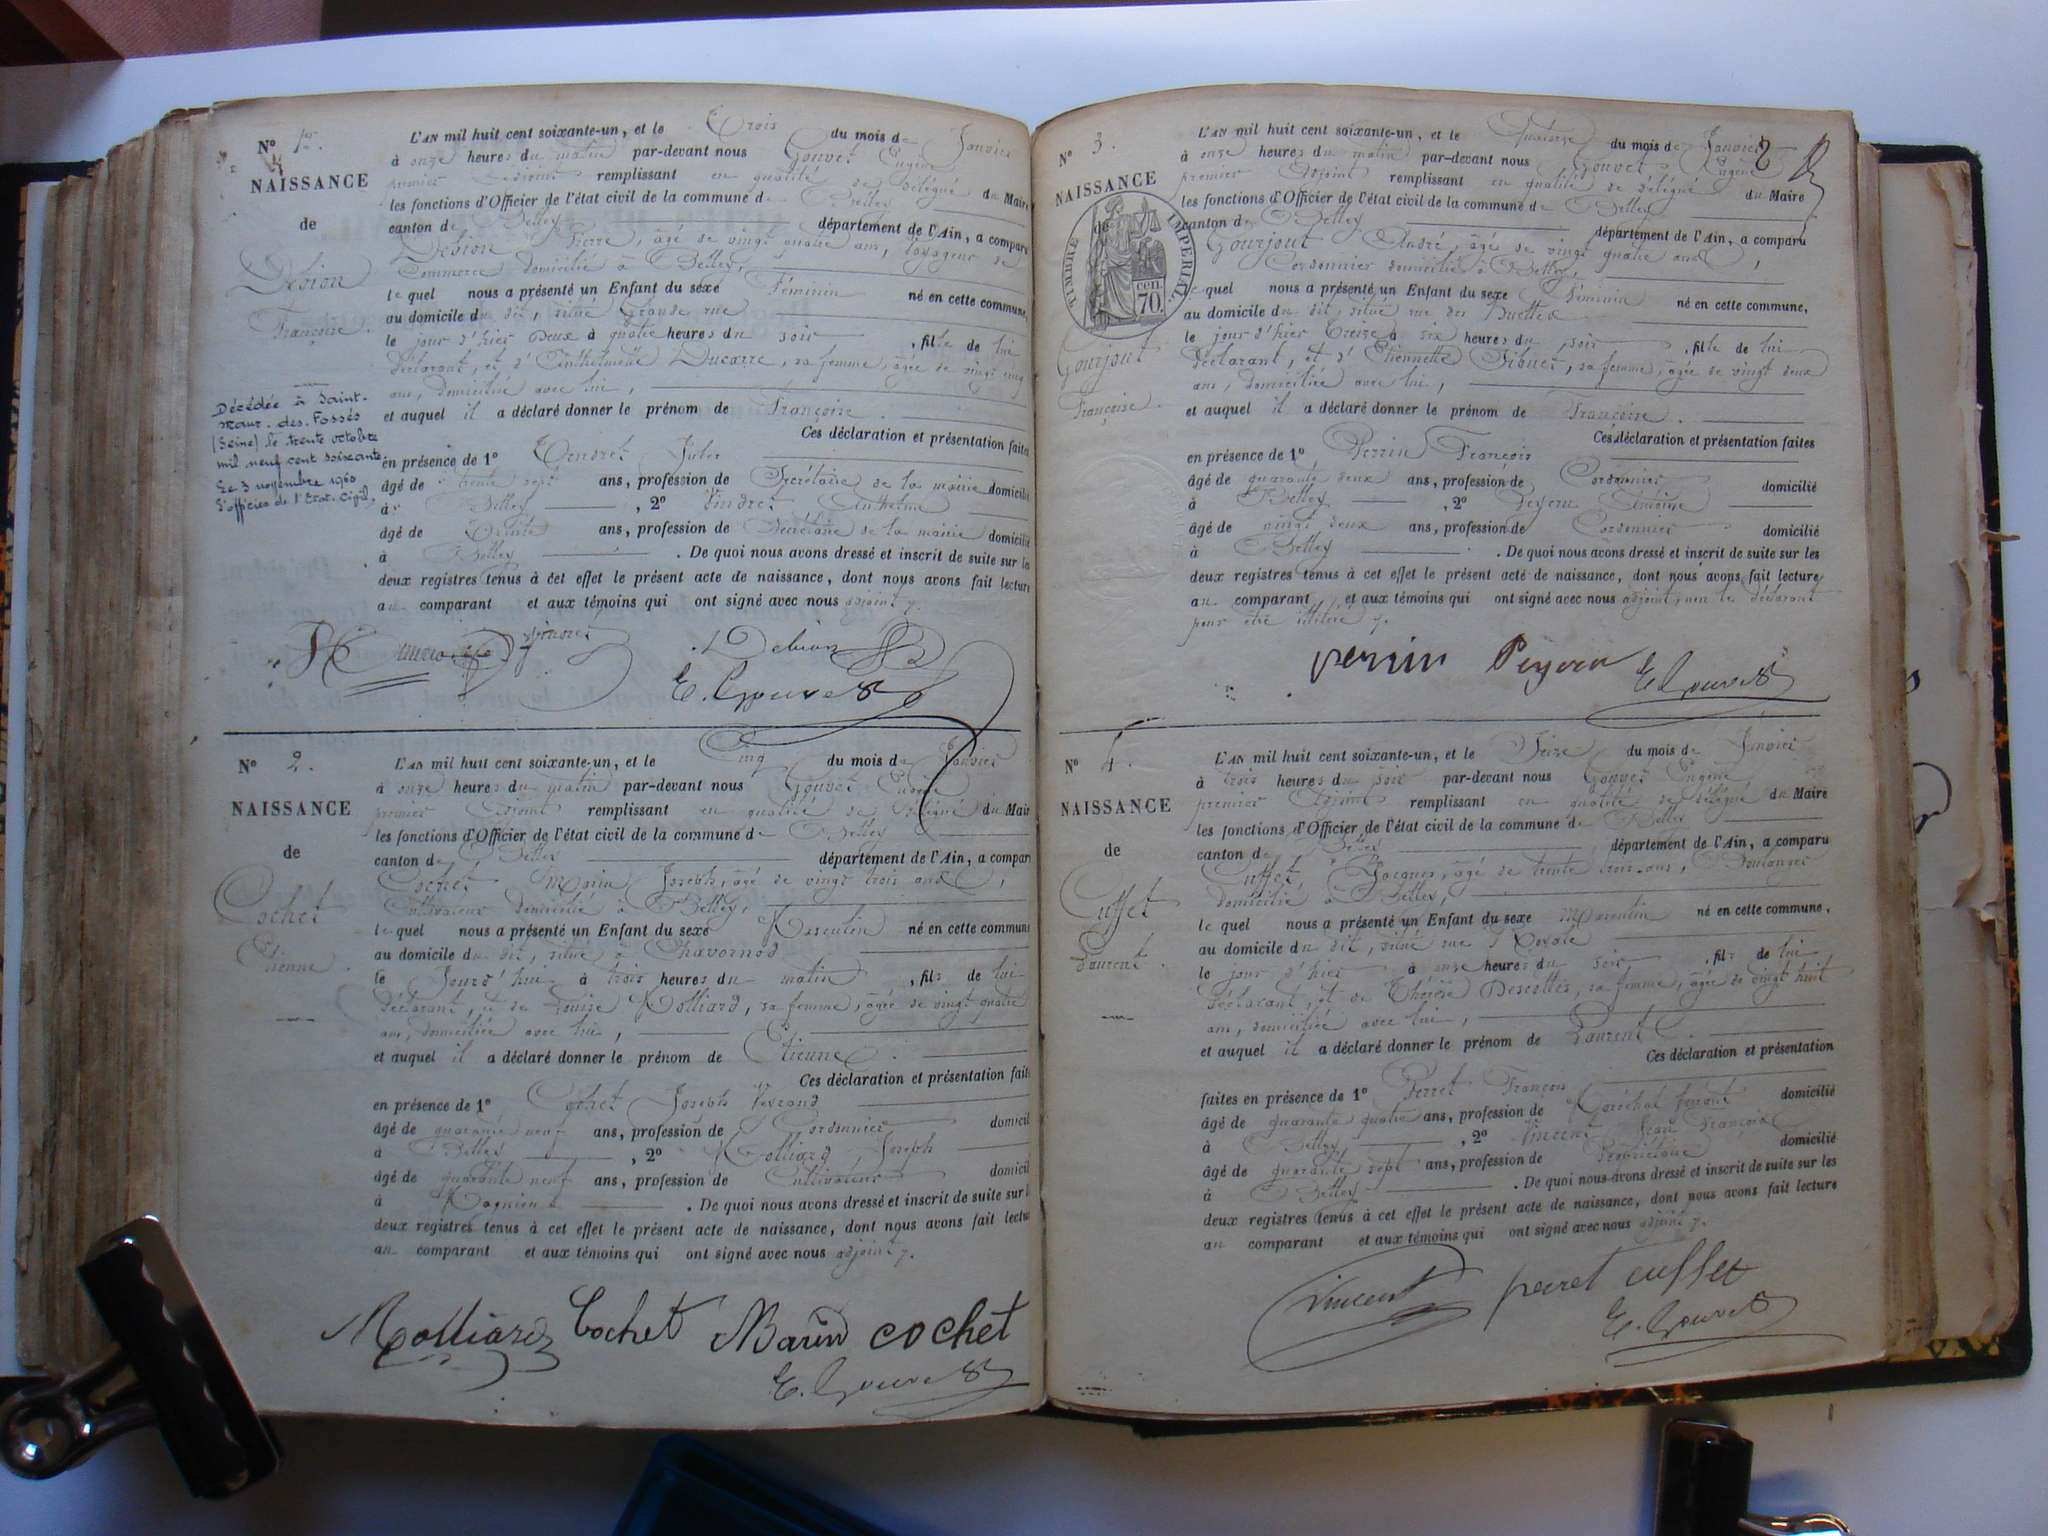 N° 1er.
NAISSANCE
de
Debion
Françoise.
Décédée à Saint-
Maur-des-Fossés
(Seine) le trente octobre
mil neuf cent soixante
Le 3 novembre 1960
L'officier de l'Etat-Civil,
L'AN mil huit cent soixante-un, et le Trois du mois de Janvier
à onze heures du matin par-devant nous Gouvet Eugène
premier adjoint remplissant en qualité de délégué du Maire
les fonctions d'Officier de l'état civil de la commune de Belley
canton de Belley département de l'Ain, a comparu
Debion Pierre, âgé de vingt quatre ans, voyageur de
Commerce domicilié à Belley,
lequel nous a présenté un Enfant du sexe Féminin né en cette commune,
au domicile du dit, situé Grande rue
le jour d'hier Deux à quatre heures du soir, fille de lui
déclarant, et d'Anthelmette Ducarre, sa femme, âgée de vingt cinq
ans, domiciliée avec lui,
et auquel il a déclaré donner le prénom de Françoise.
Ces déclaration et présentation faites
en présence de 1° Jules
âgé de trente sept ans, profession de Secrétaire de la mairie domicilié
à Belley, 2° Anthelme
âgé de Trente ans, profession de Secrétaire de la mairie domicilié
à Belley. De quoi nous avons dressé et inscrit de suite sur les
deux registres tenus à cet effet le présent acte de naissance, dont nous avons fait lecture
au comparant et aux témoins qui ont signé avec nous adjoint
Debion
E. Gouvet
N° 2.
NAISSANCE
de
Cochet
Etienne.
L'AN mil huit cent soixante-un, et le Cinq du mois de Janvier
à onze heures du matin par-devant nous Gouvet Eugène
premier adjoint remplissant en qualité de délégué du Maire
les fonctions d'Officier de l'état civil de la commune de Belley
canton de Belley département de l'Ain, a comparu
Cochet Marin Joseph, âgé de vingt trois ans,
Cultivateur domicilié à Belley,
lequel nous a présenté un Enfant du sexe Masculin né en cette commune
au domicile du dit, situé à Chavornod
le Jourd'hui à trois heures du matin, fils de lui
déclarant, et de Louise Molliard, sa femme, âgée de vingt quatre
ans, domiciliée avec lui,
et auquel il a déclaré donner le prénom de Etienne.
Ces déclaration et présentation faites
en présence de 1° Cochet Joseph
âgé de quarante neuf ans, profession de Cordonnier domicilié
à Belley, 2° Molliard Joseph
âgé de quarante neuf ans, profession de Cultivateur domicilié
à Magnieu. De quoi nous avons dressé et inscrit de suite sur les
deux registres tenus à cet effet le présent acte de naissance, dont nous avons fait lecture
au comparant et aux témoins qui ont signé avec nous adjoint
Molliard Cochet Marin cochet
E. Gouvet
2
N° 3.
NAISSANCE
de
TIMBRE IMPERIAL
70 cen.
Gourjout
Françoise.
L'AN mil huit cent soixante-un, et le Quatorze du mois de Janvier
à onze heures du matin par-devant nous Gouvet Eugène
premier adjoint remplissant en qualité de délégué du Maire
les fonctions d'Officier de l'état civil de la commune de Belley
canton de Belley département de l'Ain, a comparu
Gourjout André, âgé de vingt quatre ans,
Cordonnier domicilié à Belley,
lequel nous a présenté un Enfant du sexe Féminin né en cette commune,
au domicile du dit, situé rue des
le jour d'hier treize à six heures du soir, fille de lui
déclarant, et d'Etiennette Sibuet, sa femme, âgée de vingt deux
ans, domiciliée avec lui,
et auquel il a déclaré donner le prénom de Françoise.
Ces déclaration et présentation faites
en présence de 1° Perrin François
âgé de quarante deux ans, profession de Cordonnier domicilié
à Belley, 2° Peyron Antoine
âgé de vingt deux ans, profession de Cordonnier domicilié
à Belley. De quoi nous avons dressé et inscrit de suite sur les
deux registres tenus à cet effet le présent acte de naissance, dont nous avons fait lecture
au comparant et aux témoins qui ont signé avec nous adjoint, non le déclarant
pour être illitéré
perrin Peyron E. Gouvet
N° 4.
NAISSANCE
de
Cuffet
Laurent.
L'AN mil huit cent soixante-un, et le Seize du mois de Janvier
à trois heures du soir par-devant nous Gouvet Eugène
premier adjoint remplissant en qualité de délégué du Maire
les fonctions d'Officier de l'état civil de la commune de Belley
canton de Belley département de l'Ain, a comparu
Cuffet Jacques, âgé de trente trois ans, Boulanger
domicilié à Belley,
lequel nous a présenté un Enfant du sexe Masculin né en cette commune,
au domicile du dit, situé rue
le jour d'hier à onze heures du soir, fils de lui
déclarant, et de Thérèse Descottes, sa femme, âgée de vingt huit
ans, domiciliée avec lui,
et auquel il a déclaré donner le prénom de Laurent.
Ces déclaration et présentation
faites en présence de 1° Perret François
âgé de quarante quatre ans, profession de Maréchal ferrant domicilié
à Belley, 2° Vincent Jean François
âgé de quarante sept ans, profession de Propriétaire domicilié
à Belley. De quoi nous avons dressé et inscrit de suite sur les
deux registres tenus à cet effet le présent acte de naissance, dont nous avons fait lecture
au comparant et aux témoins qui ont signé avec nous adjoint
Vincent perret cuffet
E. Gouvet